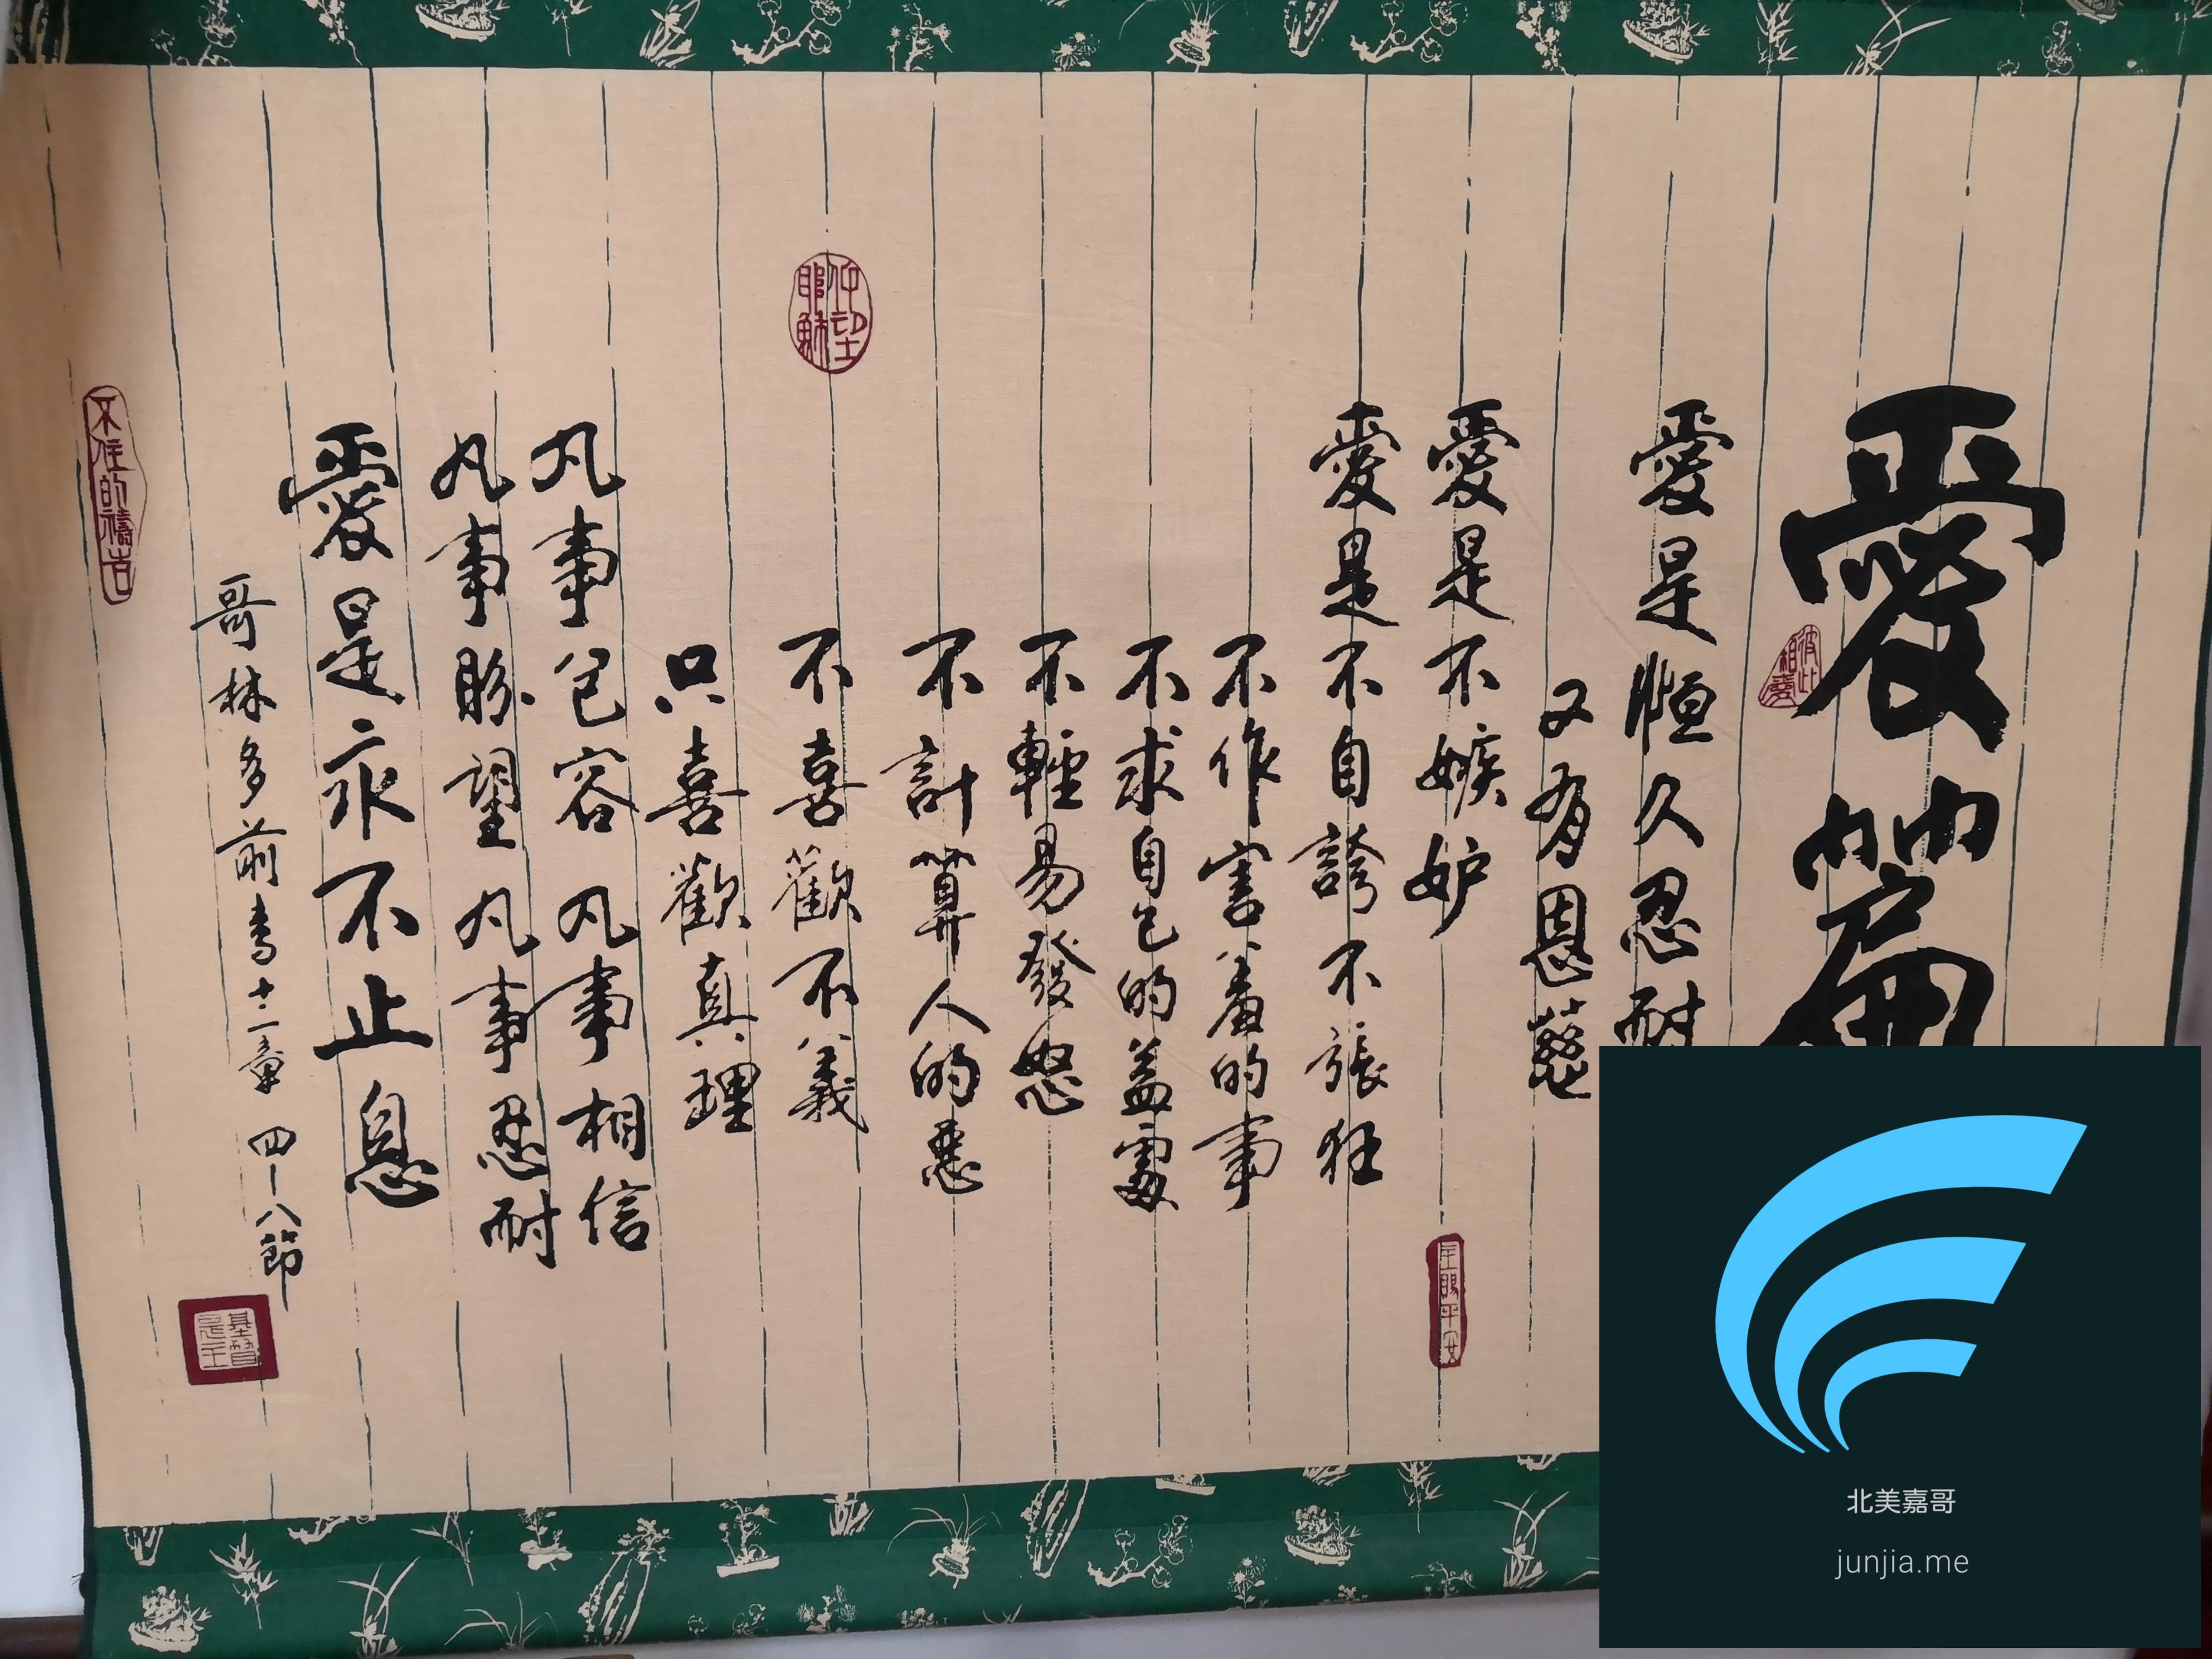 愛篇
愛是恒久忍耐
又有恩慈
愛是不嫉妒
愛是不自誇不張狂
不作害羞的事
不求自己的益處
不輕易發怒
不計算人的惡
不喜歡不義
只喜歡真理
凡事包容凡事相信
凡事盼望凡事忍耐
愛是永不止息
哥林多前書十三章四-八節
彼此相愛
主賜平安
仰望耶穌
不住的禱告
基督是主
北美嘉哥
junjia.me